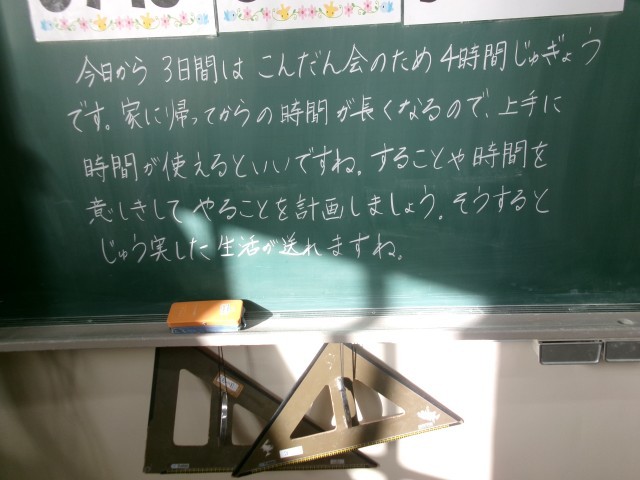 今日から 3日間は こんだん会のため 4時間じゅぎょう
です。家に帰ってからの時間が長くなるので、上手に
時間が使えるといいですね。することや時間を
意しきして やることを計画しましょう。そうすると
じゅう実した生活が送れますね。